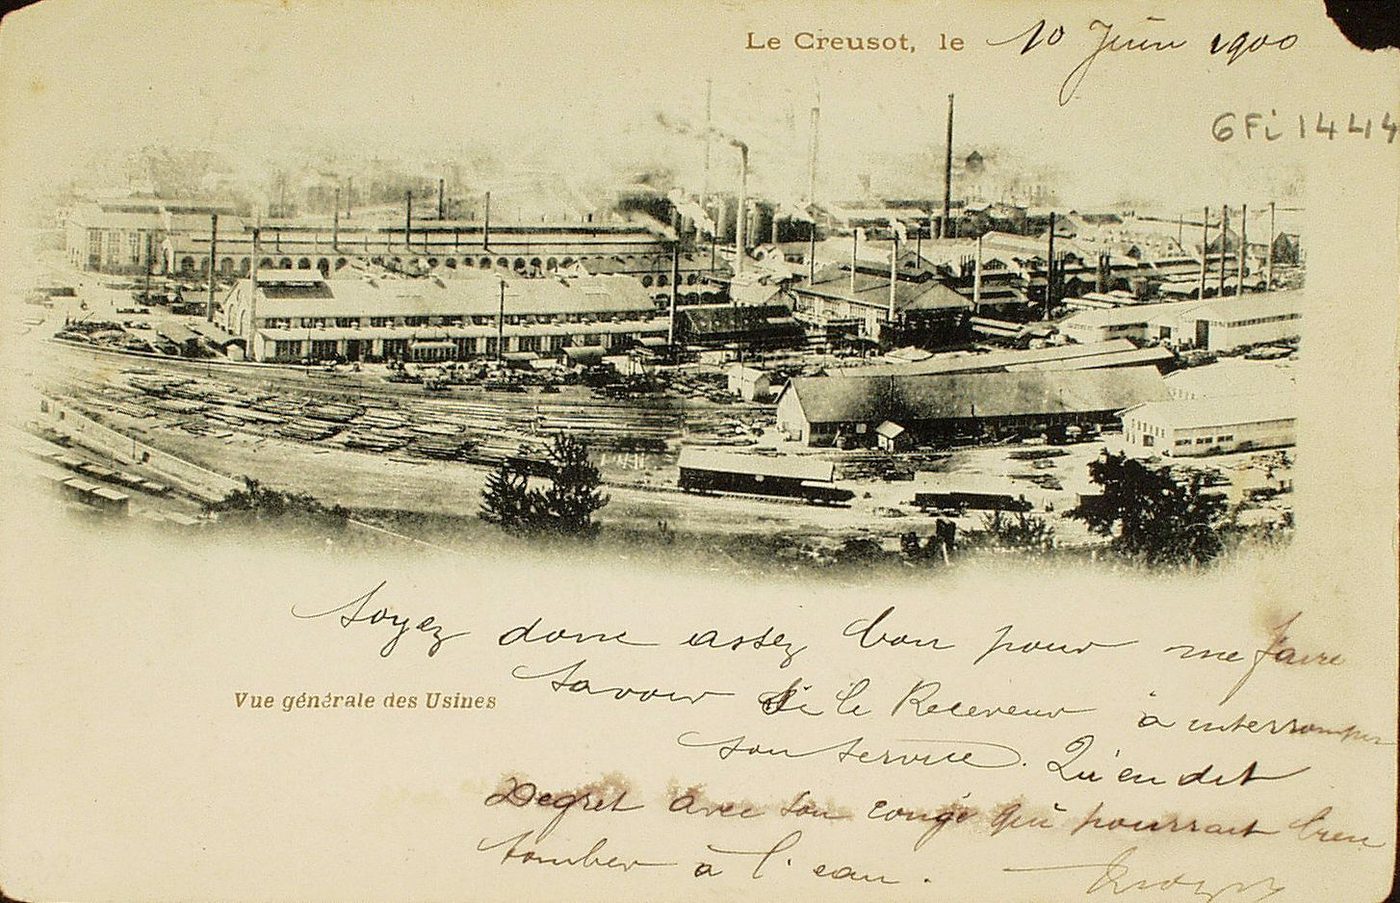 Le Creusot, le 10 Juin 1900
6Fi 1444
Soyez donc assez bon pour me faire
savoir si le Receveur à interrompu
Vue générale des Usines
son service. Qu'en dit
Degret avec son congé qui pourrait bien
tomber à l'eau.